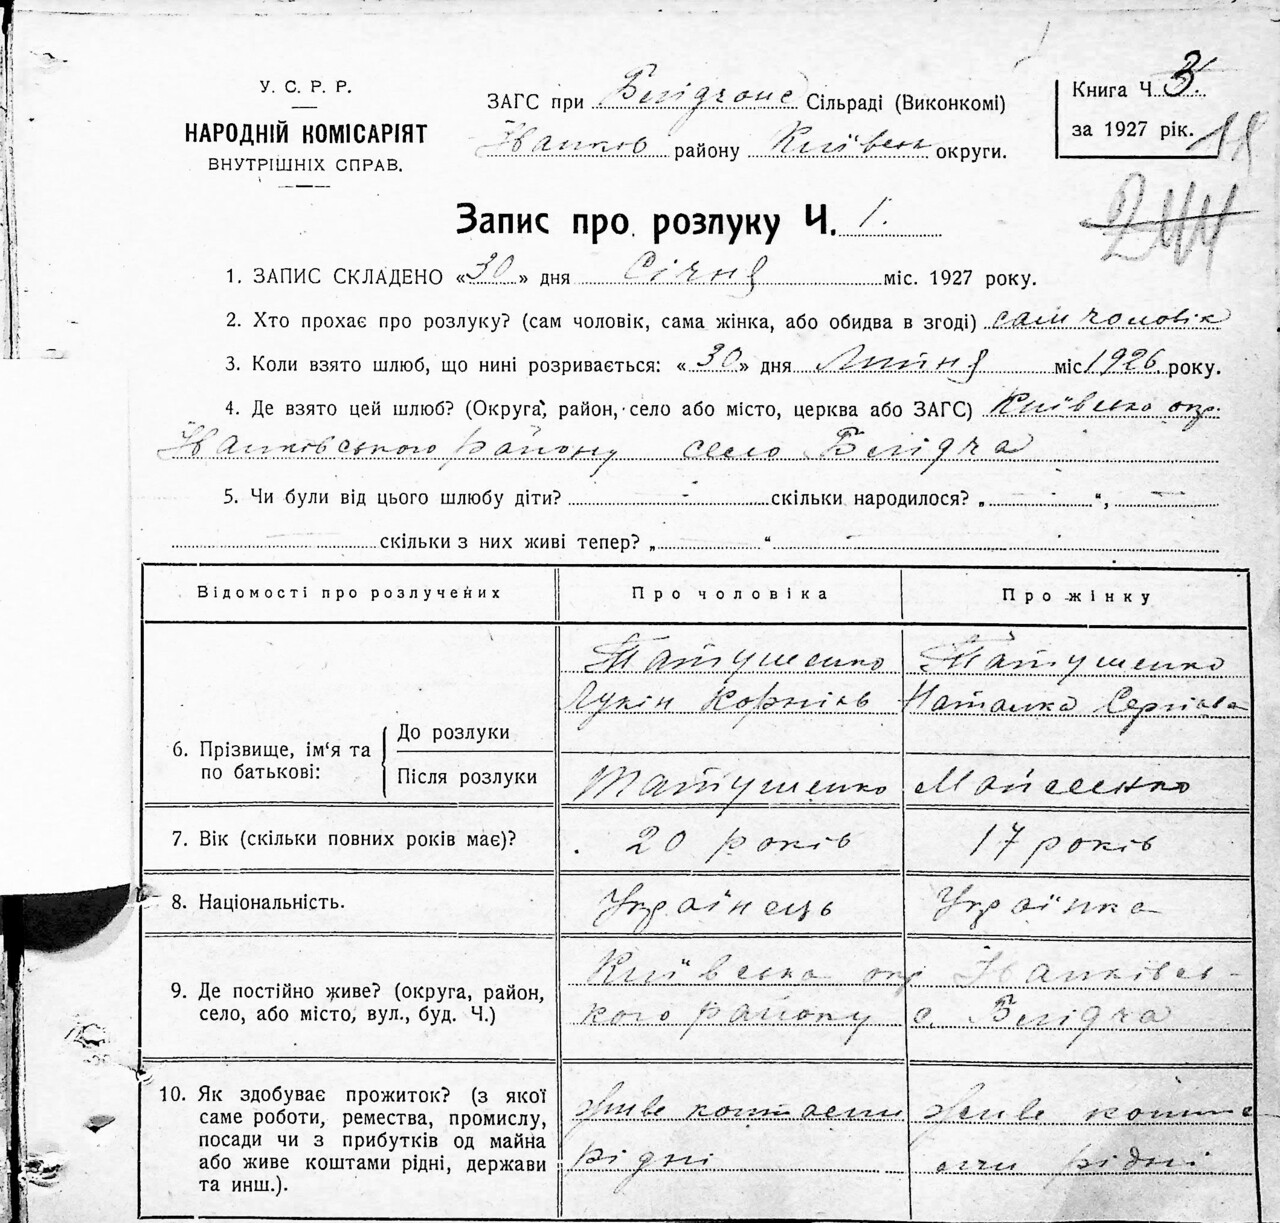 У. С. Р. Р.
НАРОДНІЙ КОМІСАРІЯТ
ВНУТРІШНІХ СПРАВ.
ЗАГС при Сільраді (Виконкомі)
Іванков району Київськ округи.
Книга Ч. 3.
за 1927 рік.
18
244
Запис про розлуку Ч. 1.
1. ЗАПИС СКЛАДЕНО «30» дня Січня міс. 1927 року.
2. Хто прохає про розлуку? (сам чоловік, сама жінка, або обидва в згоді) сам чоловік
3. Коли взято шлюб, що нині розривається: «30» дня Липня міс 1926 року.
4. Де взято цей шлюб? (Округа, район, село або місто, церква або ЗАГС) Київсько окр.
Іванковського району село
5. Чи були від цього шлюбу діти? - скільки народилося? „ — “, —
скільки з них живі тепер? „ “
Відомості про розлучених Про чоловіка Про жінку
Татушенко Татушенко
Лукін Корніїв Наталка Сергіева
6. Прізвище, ім'я та по батькові:
До розлуки
Після розлуки Татушенко Мойсеенко
7. Вік (скільки повних років має)? 20 років 17 років
8. Національність. Українець Українка
9. Де постійно живе? (округа, район, село, або місто, вул., буд. Ч.)
Київська окр Іванківсь-
кого району с.
10. Як здобуває прожиток? (з якої
саме роботи, ремества, промислу,
посади чи з прибутків од майна
або живе коштами рідні, держави
та инш.).
живе коштами живе кошта
рідні ми рідні